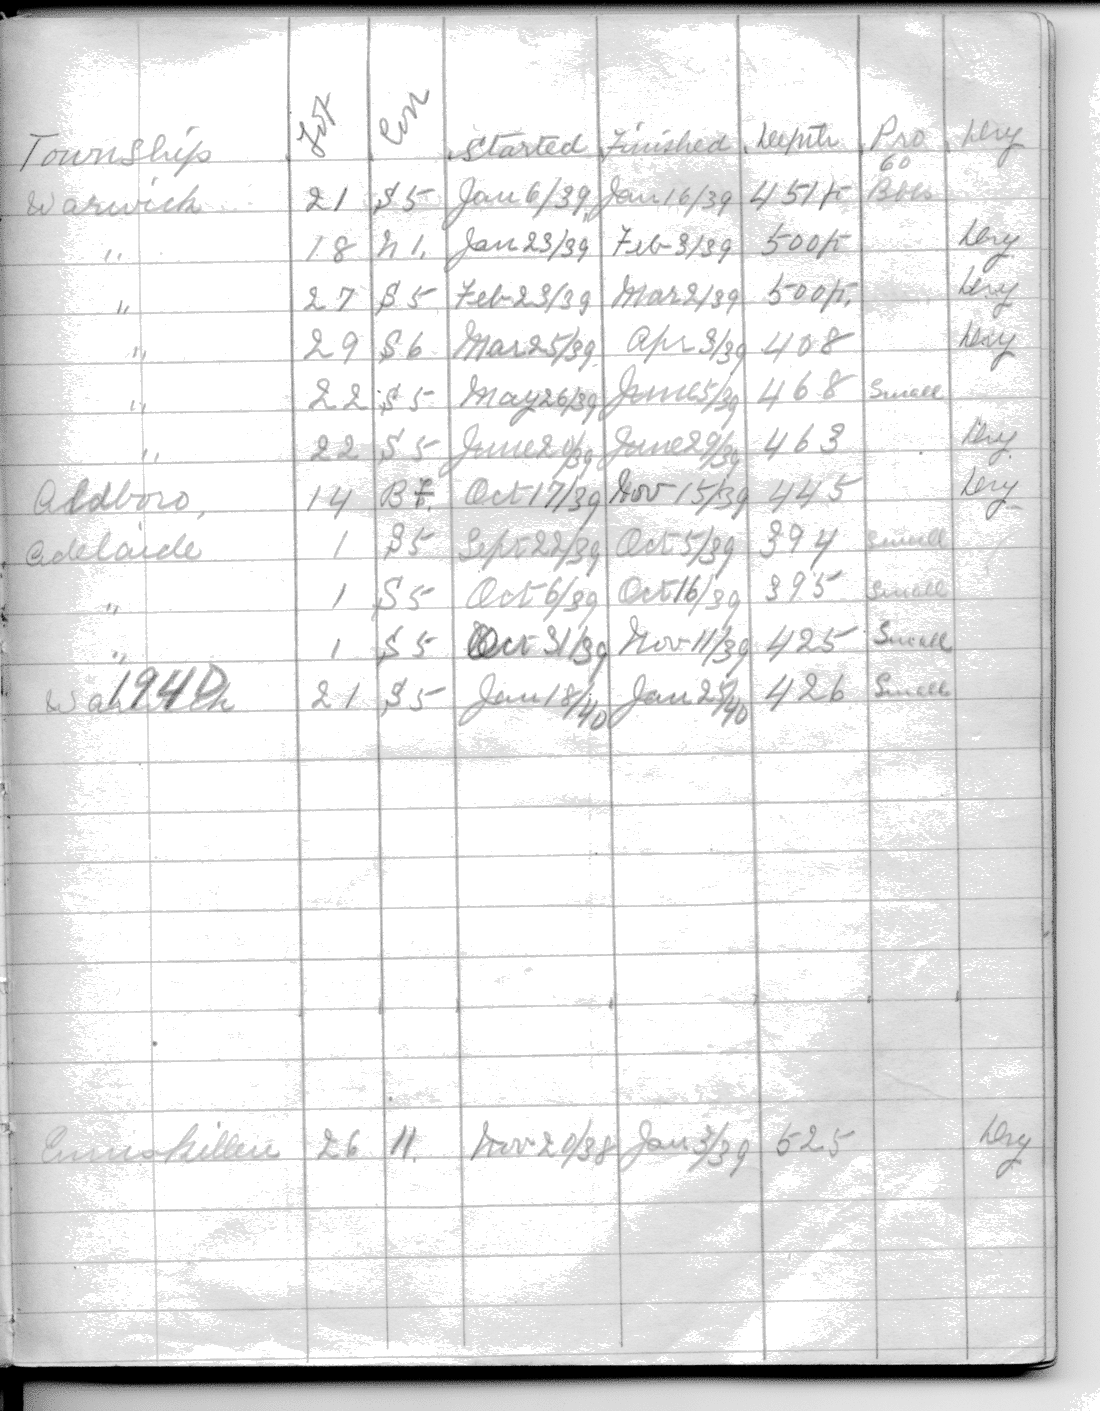 Township Lot Con Started Finished Depth Pro Dry
Warwick 21 S5 Jan 6/39 Jan 16/39 451 ft 60 Bbls
" 18 N1. Jan 23/39 Feb 3/39 500 ft Dry
" 27 S5 Feb 23/39 Mar 2/39 500 ft. Dry
" 29 S6 Mar 25/39 Apr 3/39 408 Dry
" 22 S5 May 26/39 June 5/39 468 Small
" 22 S5 June 20/39 June 29/39 463 Dry
Aldboro, 14 Oct 17/39 Nov 15/39 445 Dry
Adelaide 1 S5 Sept 22/39 Oct 5/39 394 Small
" 1 S5 Oct 6/39 Oct 16/39 395 Small
" 1 S5 Oct 31/39 Nov 11/39 425 Small
1940
Warwick 21 S5 Jan 18/40 Jan 25/40 426 Small
Enniskillen 26 11. Nov 20/38 Jan 3/39 525 Dry